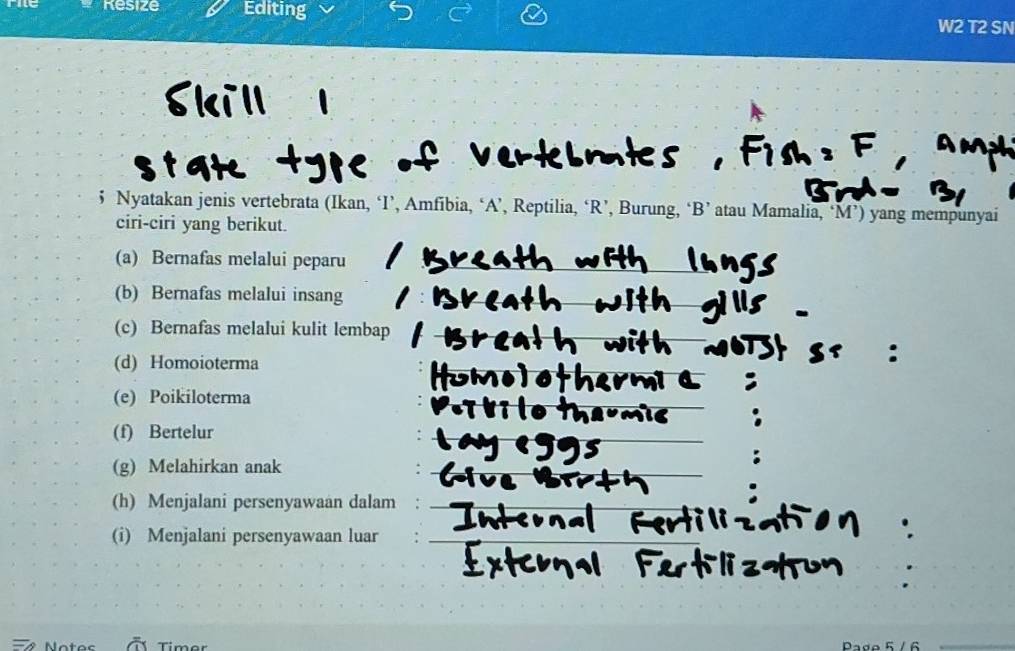 Resize Editing
W2 T2 SN
Skill 1
state type of vertebrates, Fish = F, Amph
Bird = B,
Nyatakan jenis vertebrata (Ikan, ‘I’, Amfibia, ‘A’, Reptilia, ‘R’, Burung, ‘B’ atau Mamalia, ‘M’) yang mempunyai
ciri-ciri yang berikut.
(a) Bernafas melalui peparu / Breath with lungs
(b) Bernafas melalui insang / : Breath with gills -
(c) Bernafas melalui kulit lembap / Breath with :
(d) Homoioterma : Homoiothermic :
(e) Poikiloterma : :
(f) Bertelur : lay eggs
(g) Melahirkan anak : Give Birth :
(h) Menjalani persenyawaan dalam : Internal Fertilization :
(i) Menjalani persenyawaan luar : External Fertilization :
Notes Timer Page 5 / 6